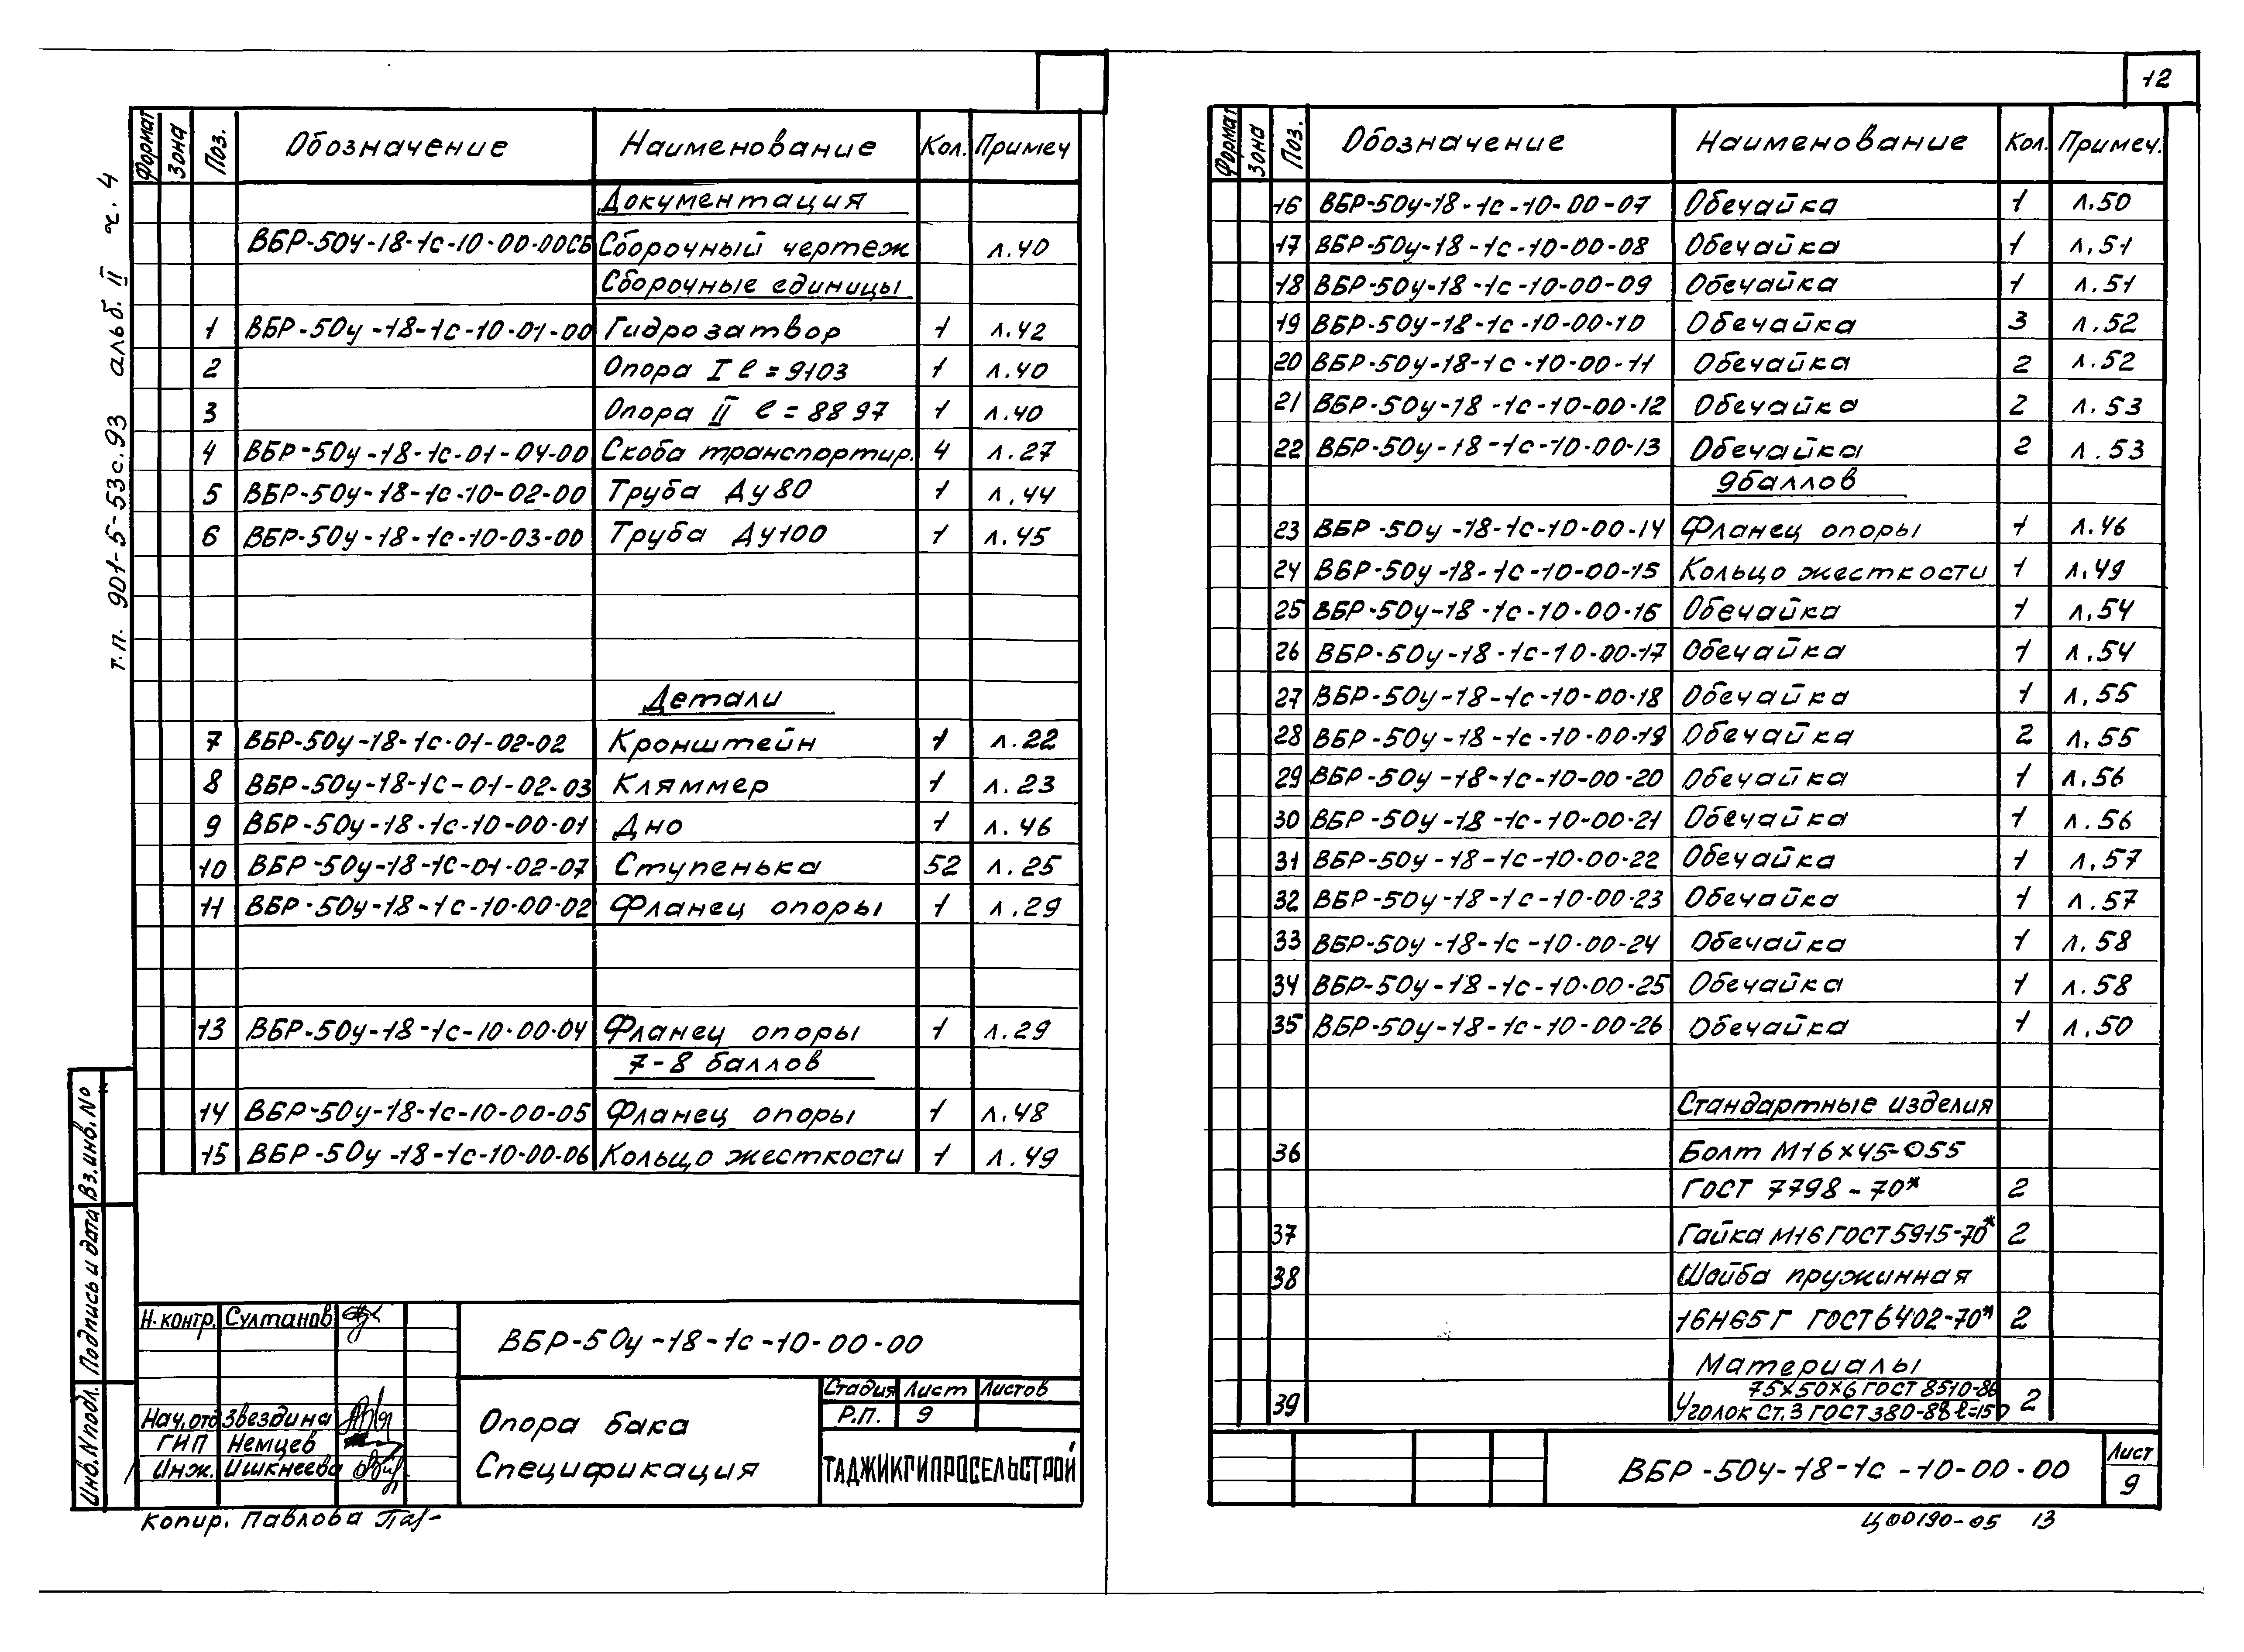 т.п. 901-5-53с.93 альб. II ч. 4
Формат Зона Поз. Обозначение Наименование Кол. Примеч
Документация
ВБР-50у-18-1с-10-00-00СБ Сборочный чертеж л.40
Сборочные единицы
1 ВБР-50у-18-1с-10-01-00 Гидрозатвор 1 л.42
2 Опора I ℓ=9103 1 л.40
3 Опора II ℓ=8897 1 л.40
4 ВБР-50у-18-1с-01-04-00 Скоба транспортир. 4 л.27
5 ВБР-50у-18-1с-10-02-00 Труба Ду80 1 л.44
6 ВБР-50у-18-1с-10-03-00 Труба Ду100 1 л.45
Детали
7 ВБР-50у-18-1с-01-02-02 Кронштейн 1 л.22
8 ВБР-50у-18-1с-01-02-03 Кляммер 1 л.23
9 ВБР-50у-18-1с-10-00-01 Дно 1 л.46
10 ВБР-50у-18-1с-01-02-07 Ступенька 52 л.25
11 ВБР-50у-18-1с-10-00-02 Фланец опоры 1 л.29
13 ВБР-50у-18-1с-10-00-04 Фланец опоры 1 л.29
7-8 баллов
14 ВБР-50у-18-1с-10-00-05 Фланец опоры 1 л.48
15 ВБР-50у-18-1с-10-00-06 Кольцо жесткости 1 л.49
Инв.№подл. Подпись и дата Вз.инв.№
Н.контр. Султанов
ВБР-50у-18-1с-10-00-00
Стадия Лист Листов
Р.П. 9
Нач.отд Звездина
ГИП Немцев
Инж. Ишкнеева
Опора бака
Спецификация
ТАДЖИКГИПРОСЕЛЬСТРОЙ
Копир. Павлова
12
Формат Зона Поз. Обозначение Наименование Кол. Примеч.
16 ВБР-50у-18-1с-10-00-07 Обечайка 1 л.50
17 ВБР-50у-18-1с-10-00-08 Обечайка 1 л.51
18 ВБР-50у-18-1с-10-00-09 Обечайка 1 л.51
19 ВБР-50у-18-1с-10-00-10 Обечайка 3 л.52
20 ВБР-50у-18-1с-10-00-11 Обечайка 2 л.52
21 ВБР-50у-18-1с-10-00-12 Обечайка 2 л.53
22 ВБР-50у-18-1с-10-00-13 Обечайка 2 л.53
9баллов
23 ВБР-50у-18-1с-10-00-14 Фланец опоры 1 л.46
24 ВБР-50у-18-1с-10-00-15 Кольцо жесткости 1 л.49
25 ВБР-50у-18-1с-10-00-16 Обечайка 1 л.54
26 ВБР-50у-18-1с-10-00-17 Обечайка 1 л.54
27 ВБР-50у-18-1с-10-00-18 Обечайка 1 л.55
28 ВБР-50у-18-1с-10-00-19 Обечайка 2 л.55
29 ВБР-50у-18-1с-10-00-20 Обечайка 1 л.56
30 ВБР-50у-18-1с-10-00-21 Обечайка 1 л.56
31 ВБР-50у-18-1с-10-00-22 Обечайка 1 л.57
32 ВБР-50у-18-1с-10-00-23 Обечайка 1 л.57
33 ВБР-50у-18-1с-10-00-24 Обечайка 1 л.58
34 ВБР-50у-18-1с-10-00-25 Обечайка 1 л.58
35 ВБР-50у-18-1с-10-00-26 Обечайка 1 л.50
Стандартные изделия
36 Болт М16×45-055
ГОСТ 7798-70* 2
37 Гайка М16 ГОСТ 5915-70* 2
38 Шайба пружинная
16Н65Г ГОСТ 6402-70* 2
Материалы
75×50×6 ГОСТ 8510-86
39 Уголок Ст.3 ГОСТ 380-88 ℓ=150 2
ВБР-50у-18-1с-10-00-00
Лист
9
Ц00190-05 13